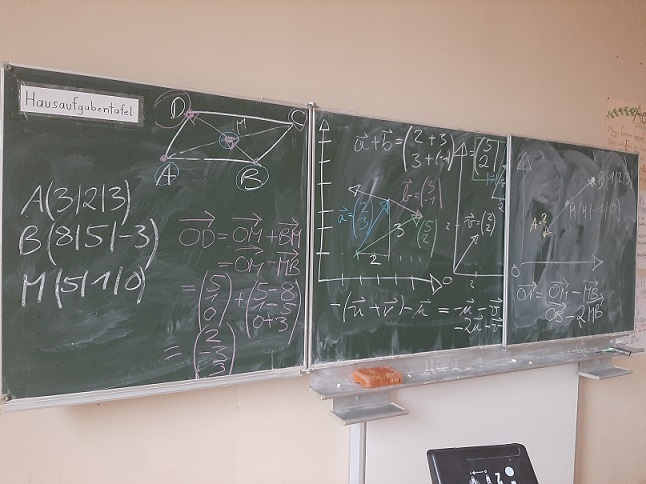 Hausaufgabentafel
D
C
M
A
B
A(3|2|3)
B(8|5|-3)
M(5|1|0)
OD = OM + BM
= OM - MB
= (5 1 0) + (5-8 1-5 0+3)
= (2 -3 3)
a + b = (2+3 3+(-1)) = (5 2)
a = (2 3)
b = (3 -1)
(5 2)
3
2
v = (2 3)
2
-(u + v) - u = -u - v
-2u - v
A = ?
0
OA = OM - MB
OB - 2MB